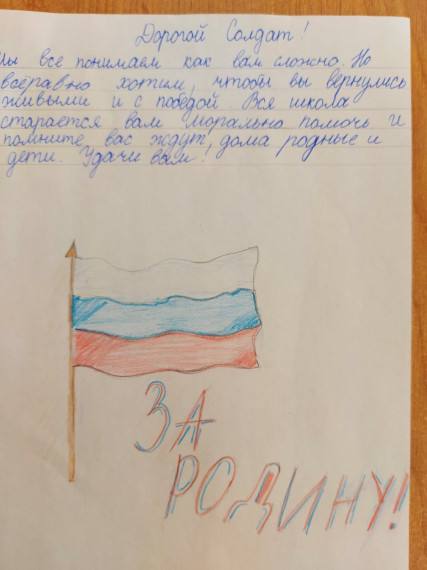 Дорогой Солдат!
Мы все понимаем как вам сложно. Но
всёравно хотим, чтобы вы вернулись
живыми и с победой. Вся школа
старается вам морально помочь и
помните вас ждут, дома родные и
дети. Удачи вам!
ЗА
РОДИНУ!